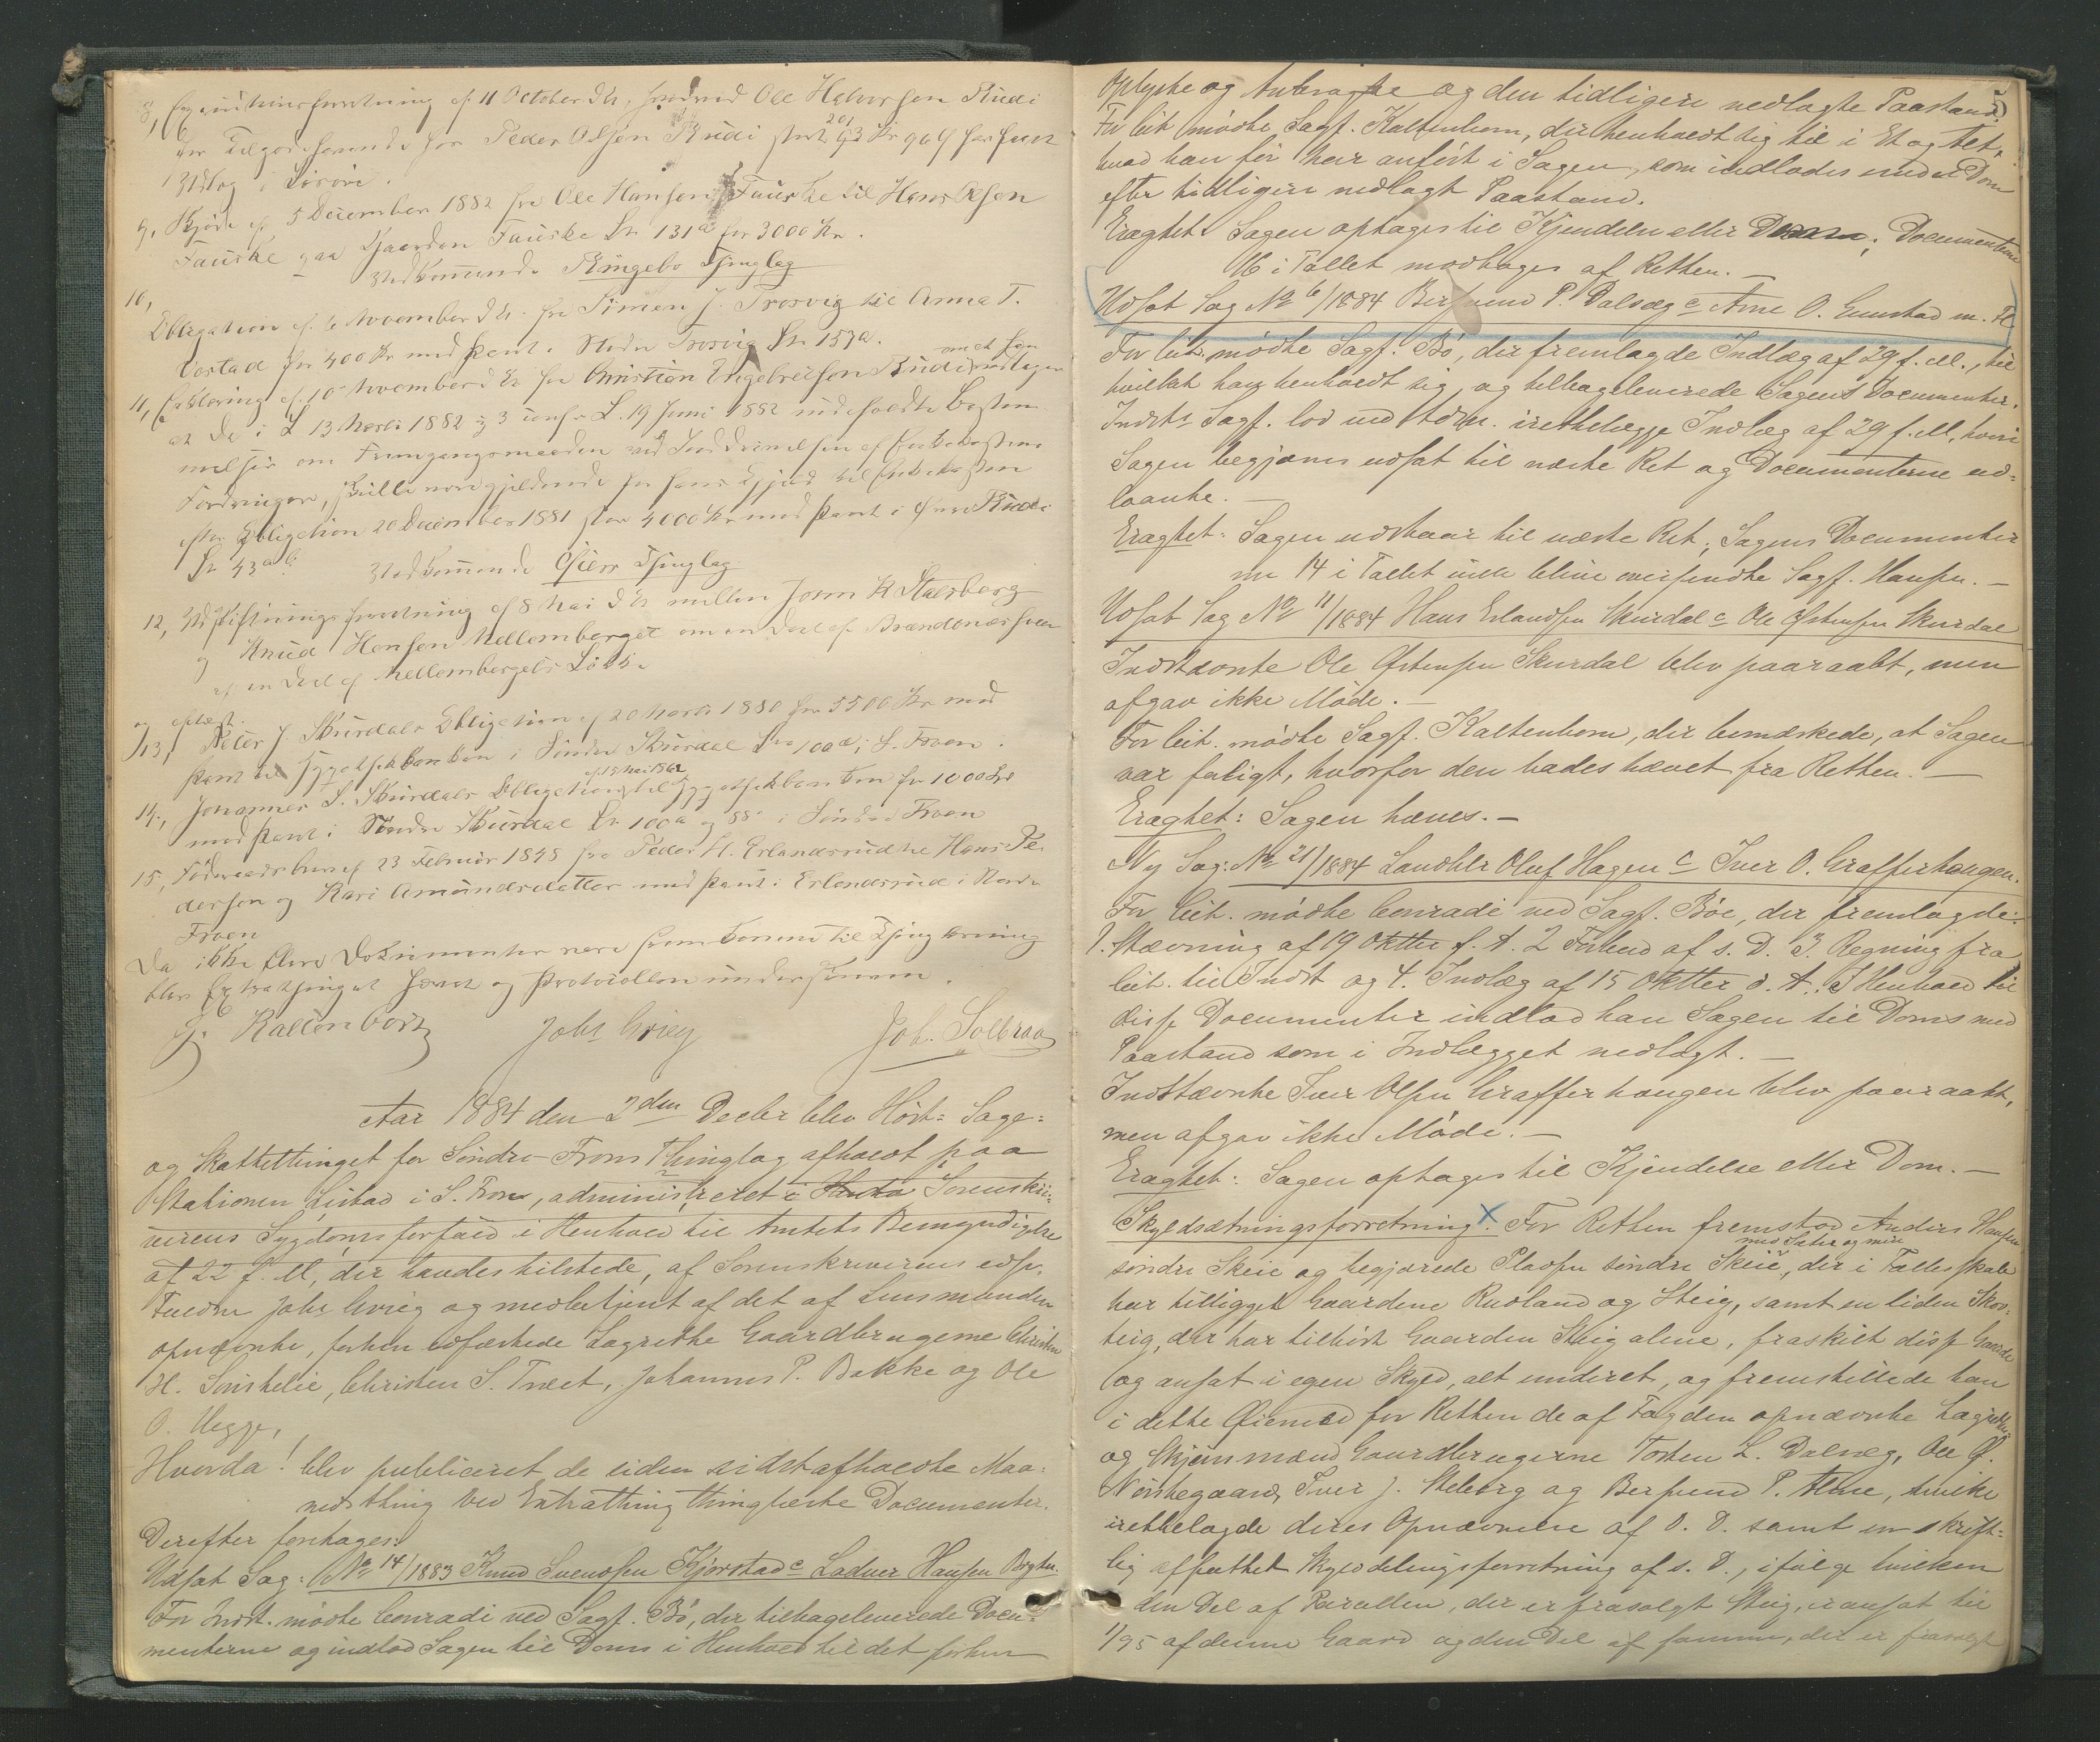 8, Exqvisitionsforretning af 11 October d A, hos Ole Halvorsen Rudi
for Tilgodehavende hos Peder Olsen Rudi stort 293 Kr 96 Ø
201
Udlæg i Løsøre.
9, Skjøde af 5 December 1882 fra Ole Hansen Fauske til Hans Olsen
Fauske paa Gaarden Fauske Lr 131a for 3000 Kr.
vedkommende Ringebo Thinglag
10,
Obligation af 6 November d A. fra Simen J. Trosvig til Anna T.
for 400 Kr med Pant i Nedre Trosvig Lr 153a.
11, Erklæring af 10 November d A fra Christian Engelbretsen Rudi
at de i L 13 Marts 1882 § 3 confr L. 19 Juni 1882 indeholdte Bestem
melser om Fremgangsmaaden ved Inddrivelsen af
Fordringer, skulle være gjeldende for hans Gjæld til
efter Obligation 20 December 1881 stor 4000 Kr med Pant i Rudi
Lr 43 a b.
vedkommende Øiers Thinglag
12, Udskiftningsforretning af 8 Mai d A mellem John H Stalsberg
og Knud Hansen Mellemberget om en Deel af
af en Deel af Mellembergets Løkke
og aflæst.
13, Peter J. Skurdals Obligation af 20 Marts 1880 for 5500 Kr med
Pant til Hypothekbanken i Søndre Skurdal Lr 100a i S. Froen.
14, Johannes S. Skurdals Obligation til Hypothekbanken for 1000
af 15 Mai 1862
med Pant i Nordre Skurdal Lr 100a og 88 i Søndre Froen
15, Føderaadsbrev af 23 Februar 1848 fra Peder H. Erlandsrud til Hans Pe
dersen og Kari Amundsdatter med Pant i Erlandsrud i Nordre
Froen
Da ikke flere Dokumenter vare fremkomne til Thinglæsning
blev Extrathinget hævet og Protocollen underskreven.
G. Kaltenborn Johs Grieg Joh. Solbraa
Aar 1884 den 2den Decbr blev Høst- Sage-
og Skattethinget for Søndre Frons Thinglag afholdt paa
Stationen Listad i S. Fron, administreret i Sorenskri-
verens Sygdomsforfald i Henhold til Amtets Bemyndigelse
af 22 f. M, der havdes tilstede, af Sorenskriverens edsv.
Fuldm Johs Grieg og medbetjent af det af Lensmanden
opnævnte, forhen edfæstede Lagrette Gaardbrugerne Christen
H. Sorkelie, Christen S. Træet, Johannes P. Bakke og Ole
O. Hegge,
Hvorda! blev publiceret de siden sidst afholdte Maa-
nedsthing ved Extrathing thinglæste Documenter.
Derefter foretages:
Udsat Sag: No 14/1883 Knud Svendsen Kjørstad c Ladver Hansen
For Indst. mødte Conradi ved Sagf. Bö, der tilbageleverede Docu-
menterne og indlod Sagen til Doms i Henhold til det forhen
5
Oplyste og Anbragte og den tidligere nedlagte Paastand.
For Cit. mødte Sagf. Kaltenborn, der henholdt sig til i Et og Alt,
hvad han før har anført i Sagen, som indlodes under Dom
efter tidligere nedlagt Paastand.
Eragtet: Sagen optages til Kjendelse eller Dom; Documenterne
16 i Tallet modtages af Retten. —
Udsat Sag No 6/1884 Bersvend P. Dalsæg c Arne O. Gunstad m. Fl
For Cit. mødte Sagf. Bö, der fremlagde Indlæg af 29 f. M., til
hvilket han henholdt sig, og tilbageleverede Sagens Documenter.
Indst. Sagf. lod ved Adm. irettelægge Indlæg af 29 f. M, hvori
Sagen begjæres udsat til næste Ret og Documenterne ud-
laante. —
Eragtet: Sagen udstaar til næste Ret; Sagens Documenter
nu 14 i Tallet ville blive oversendte Sagf. Hansen. —
Udsat Sag No 11/1884 Hans Erlandsen Skurdal c Ole Østensen Skurdal
Indstævnte Ole Østensen Skurdal blev paaraabt, men
afgav ikke Møde. —
For Cit. mødte Sagf. Kaltenborn, der bemærkede, at Sagen
var forligt, hvorfor den bades hævet fra Retten. —
Eragtet: Sagen hæves. —
Ny Sag: No 21/1884 Landhlr Oluf Hagen c Iver O. Graffer haugen.
For Cit. mødte Conradi ved Sagf. Böe, der fremlagde:
1. Stævning af 19 Oktbr f. A. 2 Forhold af s. D. 3. Regning fra
Cit. til Indst og 4. Indlæg af 15 Oktbr d. A. I Henhold til
disse Documenter indlod han Sagen til Doms med
Paastand som i Indlægget nedlagt. —
Indstævnte Iver Olsen Graffer haugen blev paaraabt,
men afgav ikke Møde. —
Eragtet: Sagen optages til Kjendelse eller Dom. —
Skyldsætningsforretning. For Retten fremstod Anders Hansen
med Sæter og mere
søndre Skeie og begjærede Pladsen søndre Skeie, der i Fællesskab
har tilligget Gaardene Rudland og Steig, samt en liden Skov-
teig, der har tilhørt Gaarden Steig alene, fraskilt disse Gaarde
og ansat i egen Skyld, alt underet, og fremstillede han
i dette Øiemed for Retten de af Fogden opnævnte Lagrettes
og Skjønsmænd Gaardbrugerne Torsten L. Dalsæg, Ole O.
Norstegaard, Iver J. Steberg og Bersvend P. Alme, hvilke
irettelagde deres Opnævnelse af D. D. samt en skrift-
lig affattet Skylddelingsforretning af s. D., ifølge hvilken
den Del af Parcellen, der er frasolgt Steig, er ansat til
1/95 af denne Gaard og den Del af samme, der er frasolgt